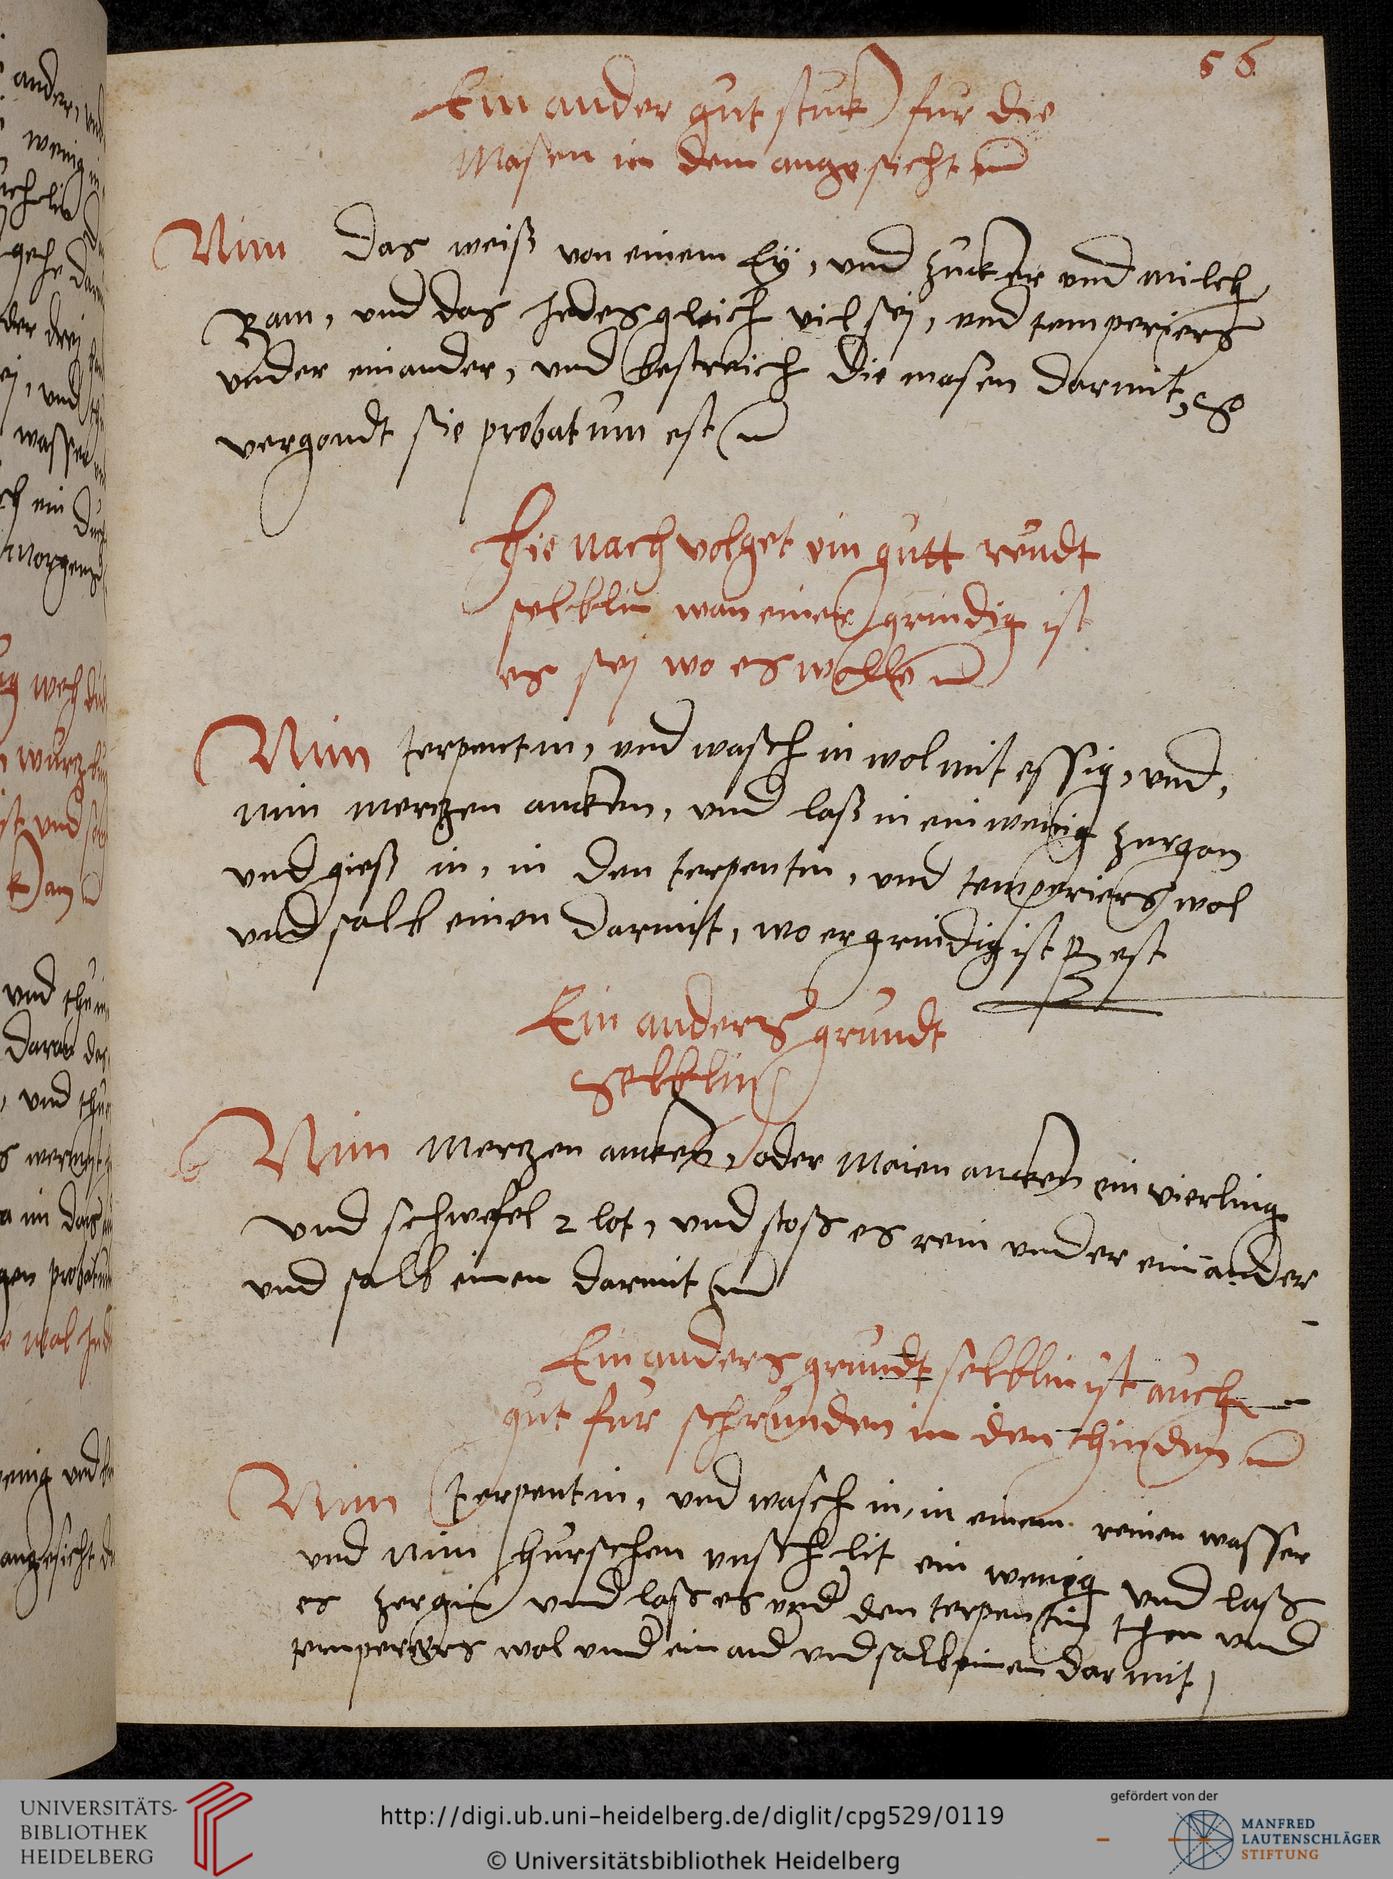 56
Ein ander gut stuck fur die
Masen in dem angesicht
Nim das weiß von einem Ey, und zucker und milch
Ram, und das Jedes gleich vil sej, und temperiers
under einander, und bestreich die masen darmit, so
vergondt sie probatum est
Hie nach volget ein gutt reudt
selblin wan einer grindig ist
es sej wo es wolle
Nim terpentin, und wasch in wol mit essig, und,
nim mertzen ancken, und laß in ein wenig zergan
und gieß in, in den terpentin, und temperiers wol
und salb einen darmit, wo er grindig ist p est
Ein anders grundt
Selblin
Nim Mertzen ancken, oder Maien ancken ein vierling
und schwefel 2 lot, und stoß es rein under einander
und salb einen darmit
Ein anders grundt selblin ist auch
gut fur schrunden in den henden
Nim terpentin, und wasch in, in einem reinen wasser
und nim hirschen unschlit ein wenig und laß
es zergen und laß es und den terpentin then und
temperiers wol und ein and und salb einen darmit
UNIVERSITÄTS-
BIBLIOTHEK
HEIDELBERG
http://digi.ub.uni-heidelberg.de/diglit/cpg529/0119
© Universitätsbibliothek Heidelberg
gefördert von der
MANFRED
LAUTENSCHLÄGER
STIFTUNG